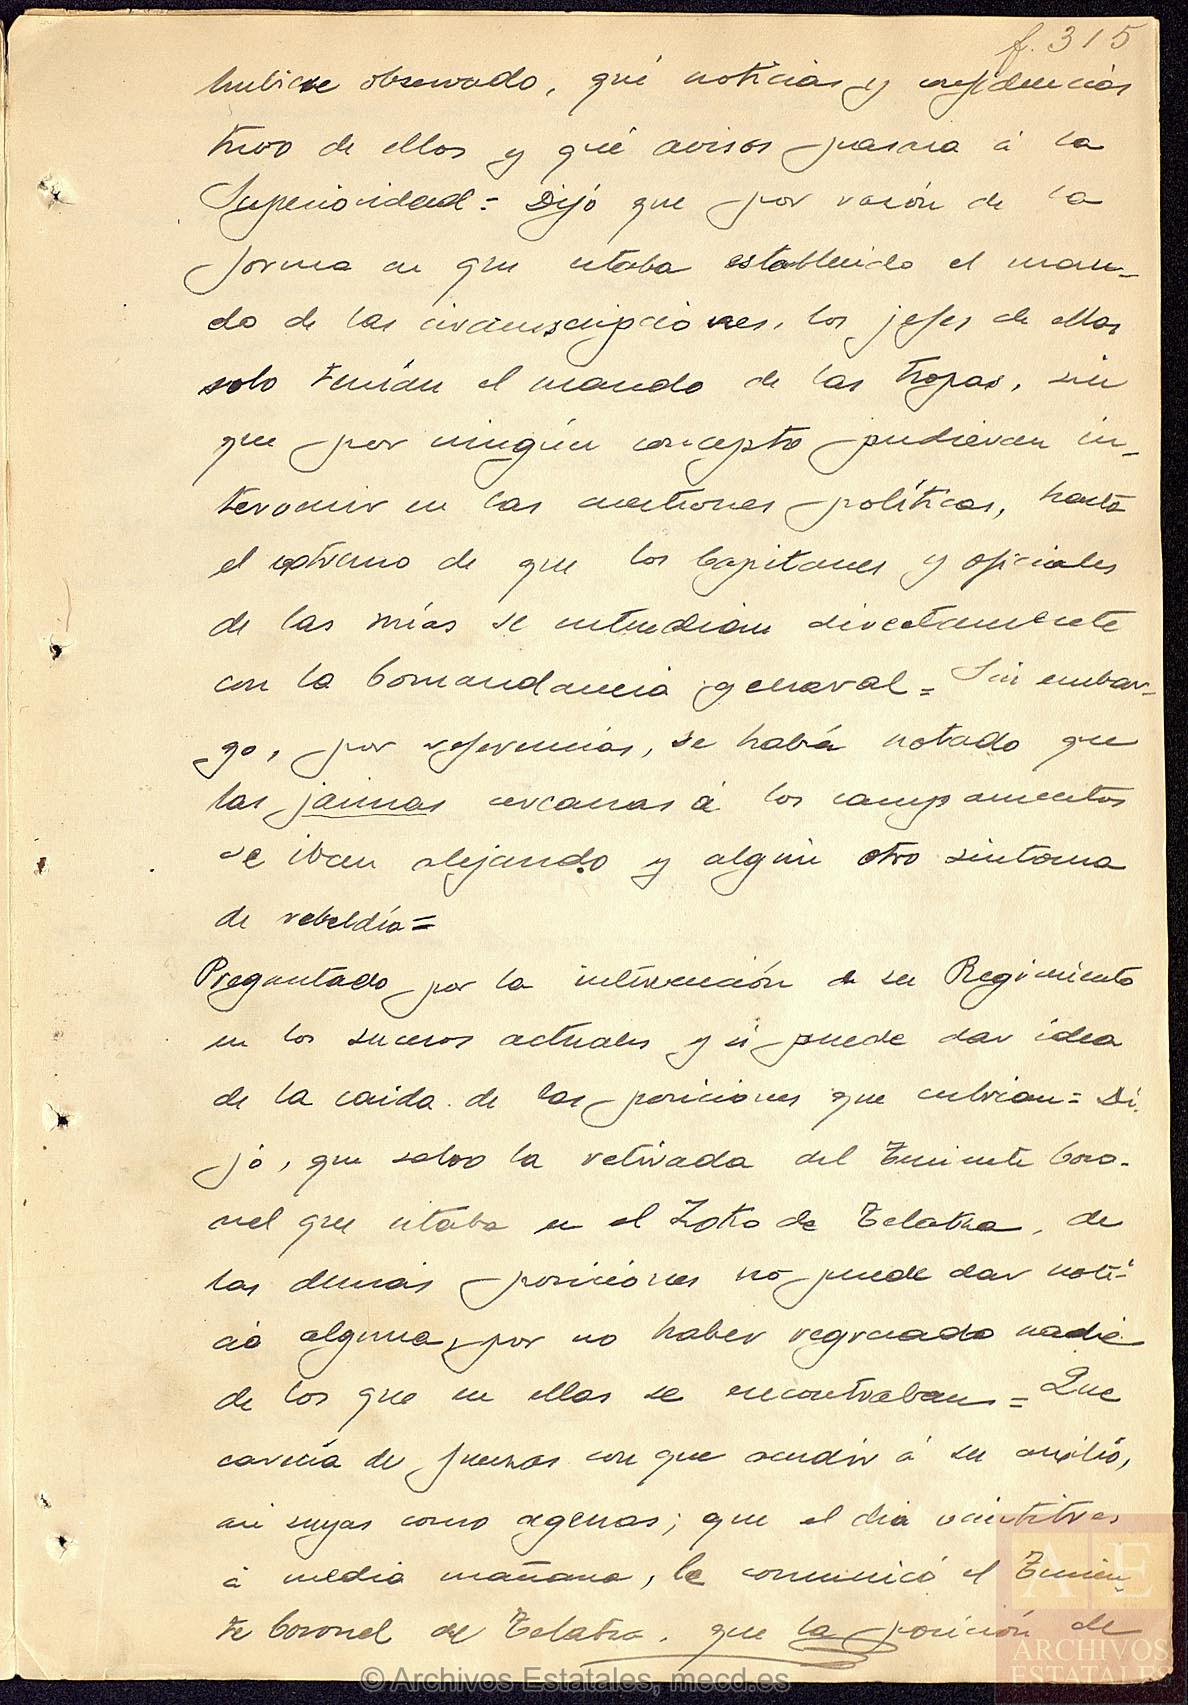 f. 315
hubiese observado, qué noticias y confidencias
tuvo de ellos y qué avisos pasara á la
Superioridad = Dijó que por razón de la
forma en que estaba establecido el man-
do de las circunscripciones, los jefes de ellas
solo tenían el mando de las tropas, sin
que por ningún concepto pudieran in-
tervenir en las cuestiones políticas, hasta
el extremo de que los Capitanes y oficiales
de las mías se entendían directamente
con la Comandancia general = Sin embar-
go, por referencias, se había notado que
las jaimas cercanas á los campamentos
se iban alejando y algún otro síntoma
de rebeldía =
Preguntado por la intervención de su Regimiento
en los sucesos actuales y si puede dar idea
de la caida de las posiciones que cubrian = Di-
jó, que salvo la retirada del Teniente Coro-
nel que estaba en el Zoko de Telatza, de
las demás posiciones no puede dar noti-
cia alguna, por no haber regresado nadie
de los que en ellas se encontraban = Que
carecía de fuerzas con que acudir á su auxilio,
así suyas como agenas; que el dia veintitres
á media mañana, le comunicó el Tenien-
te Coronel de Telatza, que la posición de
© Archivos Estatales, mecd.es
AE
ARCHIVOS
ESTATALES